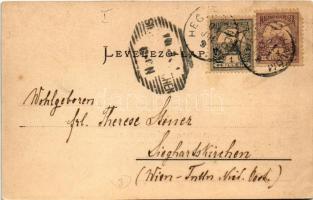 LEVELEZŐ-LAP.
HEG
Wohlgeboren
frl. Therese Stener
Sieghartskirchen
(Wien – Tulln Nied. Oest.)